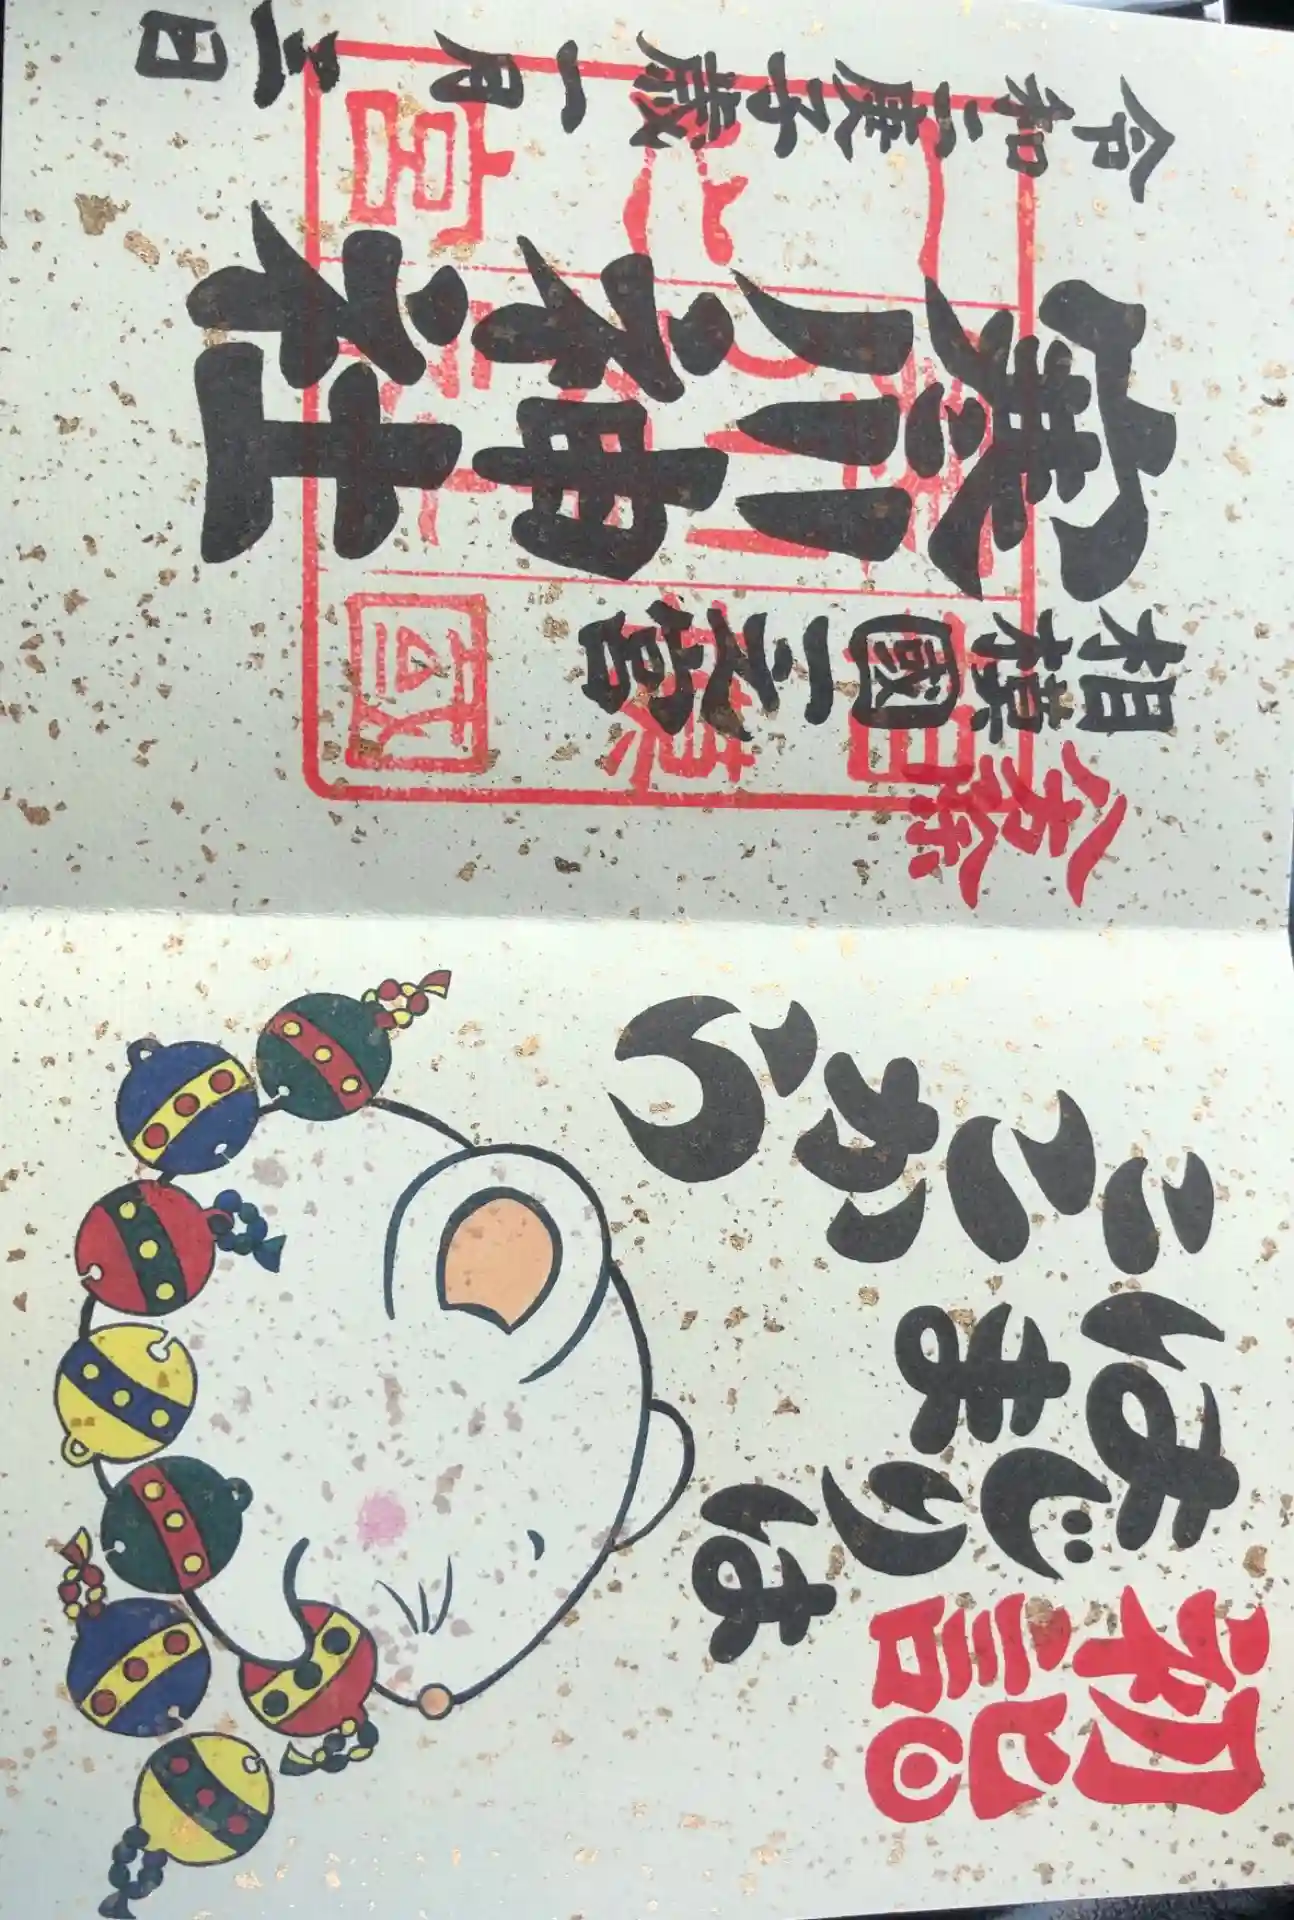 初詣
はじまりは
ここから
八方除
相模國一之宮
寒川神社
令和二庚子歳一月三日